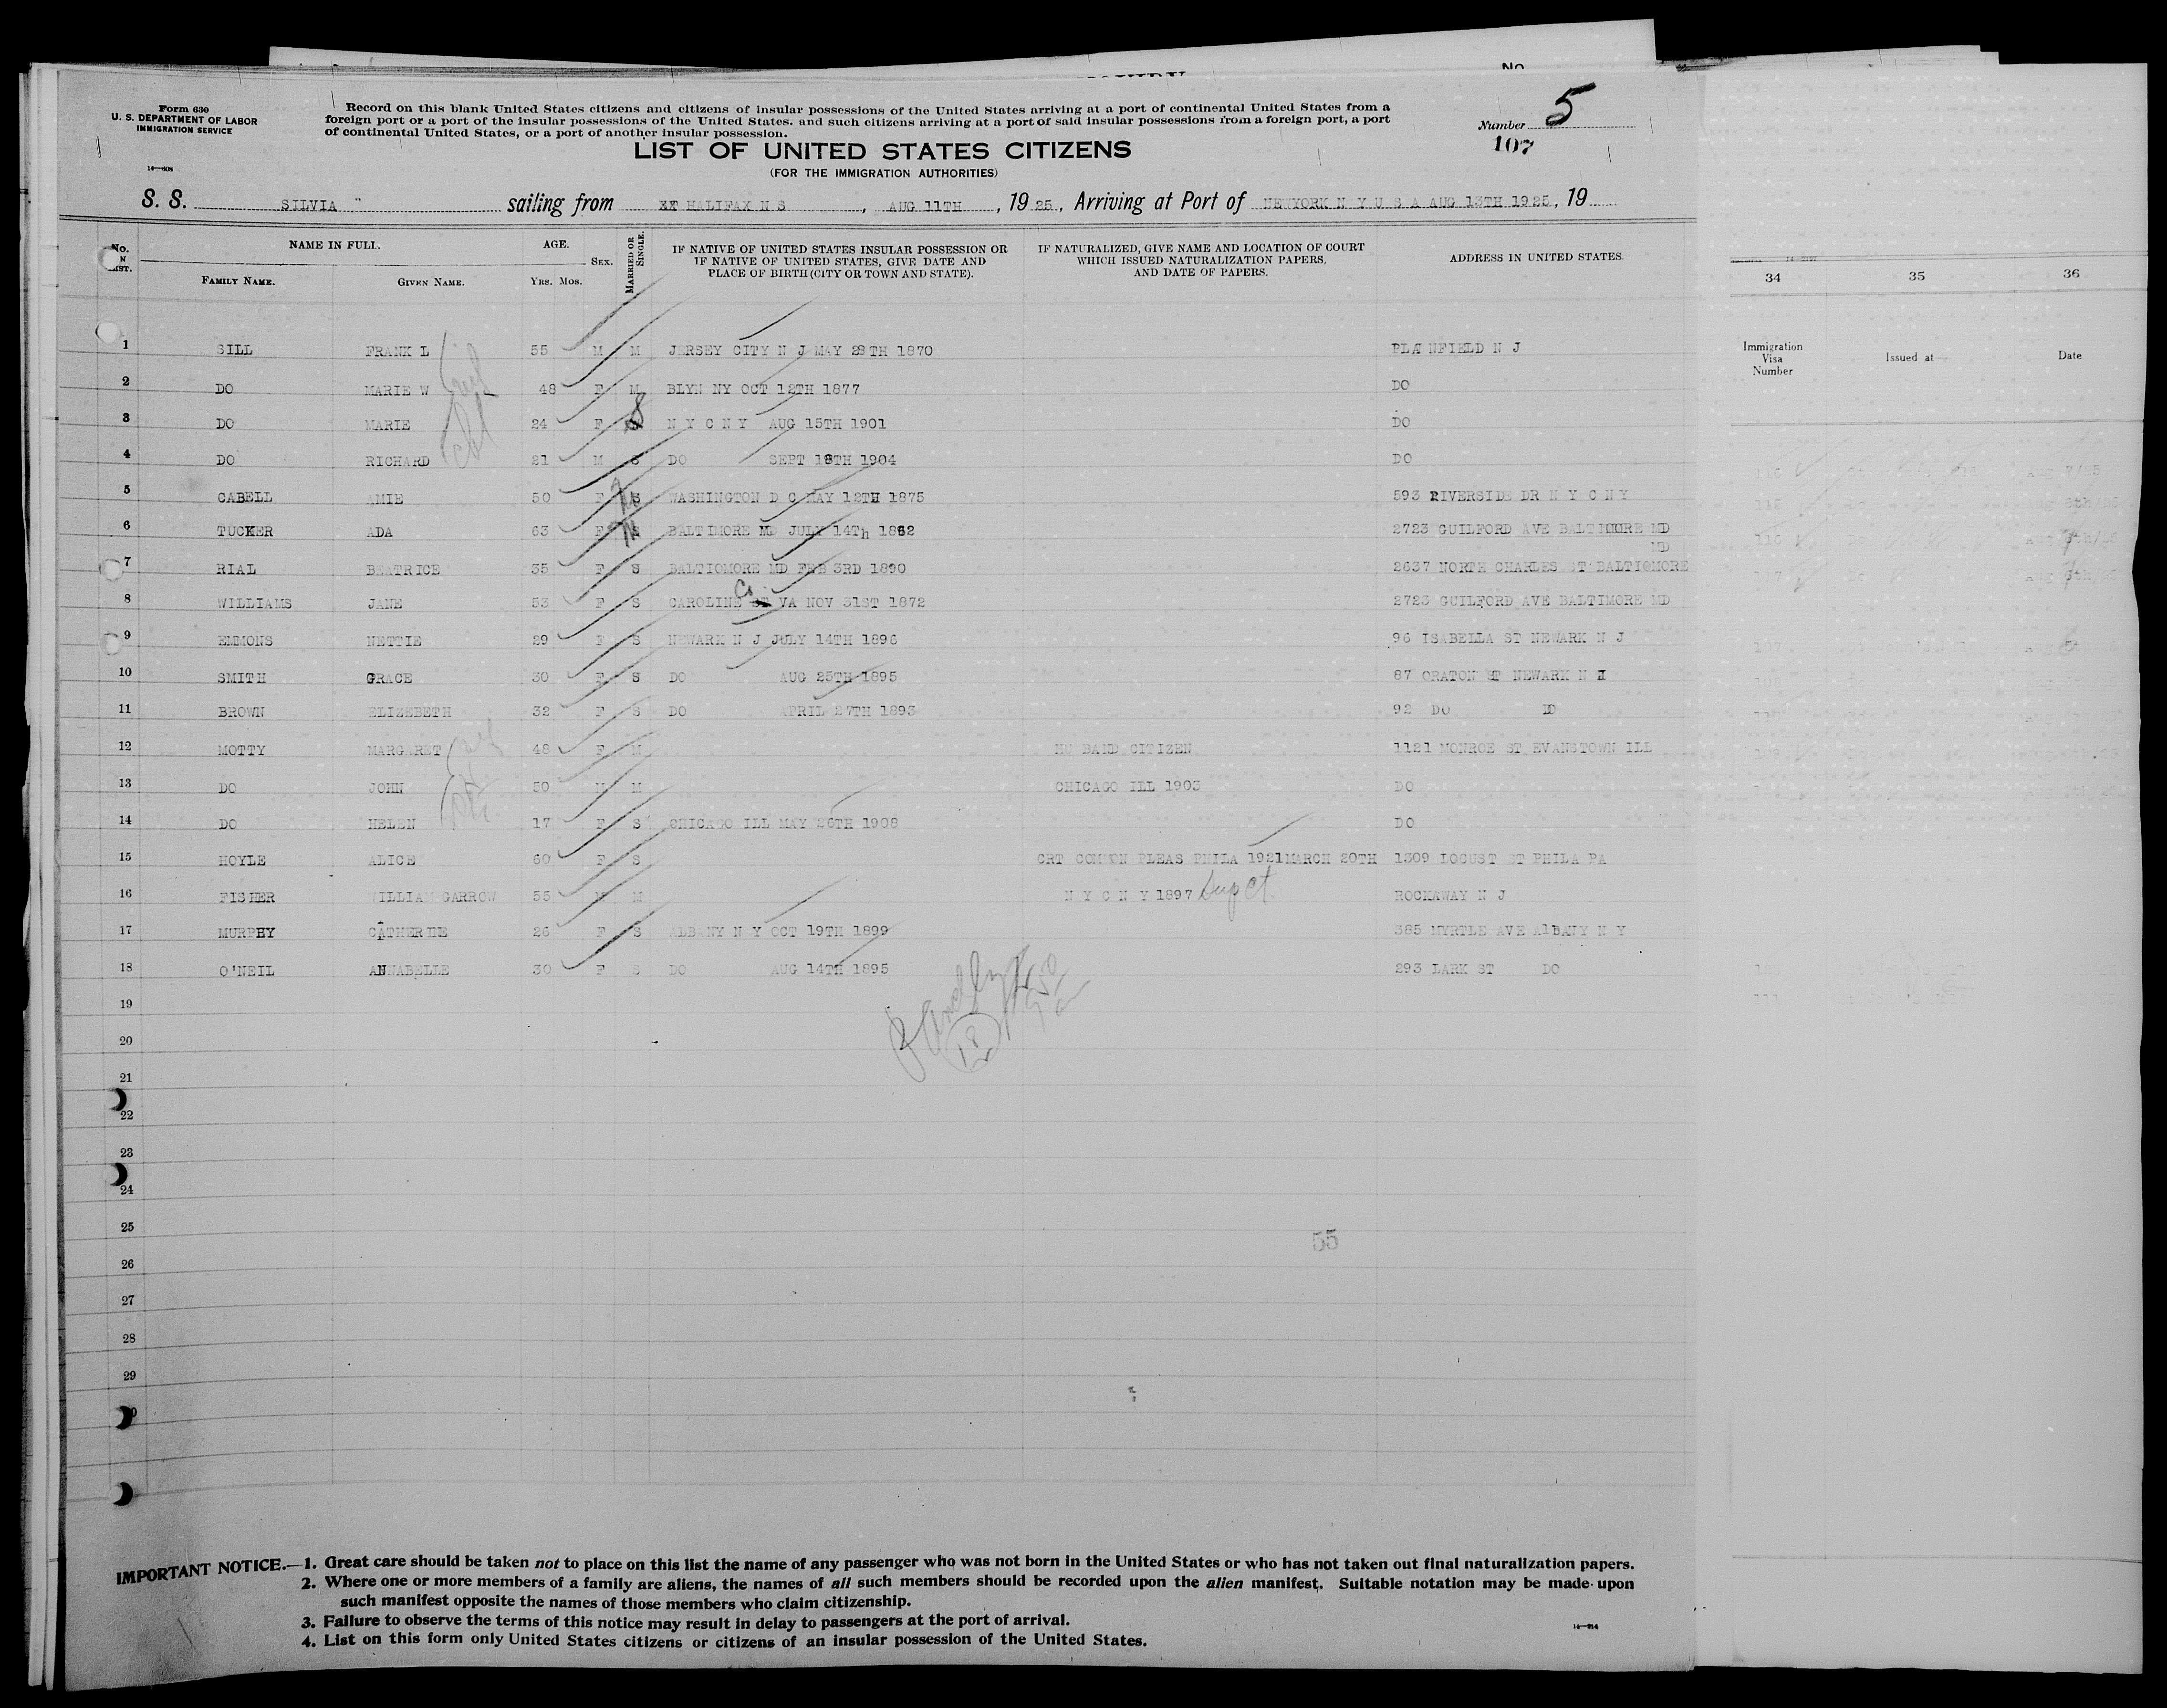 No
Form 630
U. S. DEPARTMENT OF LABOR
IMMIGRATION SERVICE
14—608
Record on this blank United States citizens and citizens of insular possessions of the United States arriving at a port of continental United States from a
foreign port or a port of the insular possessions of the United States. and such citizens arriving at a port of said insular possessions from a foreign port, a port
of continental United States, or a port of another insular possession.
Number 5
107
LIST OF UNITED STATES CITIZENS
(FOR THE IMMIGRATION AUTHORITIES)
S. S. SILVIA " sailing from HALIFAX N S , AUG 11TH , 19 25 , Arriving at Port of NEWYORK N Y U S A AUG 13TH 1925 , 19
NAME IN FULL. AGE. SEX. MARRIED OR SINGLE. IF NATIVE OF UNITED STATES INSULAR POSSESSION OR IF NATIVE OF UNITED STATES, GIVE DATE AND PLACE OF BIRTH (CITY OR TOWN AND STATE). IF NATURALIZED, GIVE NAME AND LOCATION OF COURT WHICH ISSUED NATURALIZATION PAPERS, AND DATE OF PAPERS. ADDRESS IN UNITED STATES.
No. FAMILY NAME. GIVEN NAME. YRS. MOS.
34 35 36
Immigration Visa Number Issued at— Date
1 SILL FRANK L 55 M M JERSEY CITY N J MAY 28TH 1870 PLAINFIELD N J
2 DO MARIE W 48 F M BLYN NY OCT 12TH 1877 DO
3 DO MARIE 24 F S N Y C N Y AUG 15TH 1901 DO
4 DO RICHARD 21 M S DO SEPT 16TH 1904 DO
5 CABELL AMIE 50 F M WASHINGTON D C MAY 12TH 1875 593 RIVERSIDE DR N Y C N Y
6 TUCKER ADA 63 F M BALTIMORE MD JULY 14Th 1862 2723 GUILFORD AVE BALTIMORE MD
MD
7 RIAL BEATRICE 35 F S BALTIOMORE MD FEB 3RD 1890 2637 NORTH CHARLES ST BALTIOMORE
8 WILLIAMS JANE 53 F S CAROLINE Co VA NOV 31ST 1872 2723 GUILFORD AVE BALTIMORE MD
9 EMMONS NETTIE 29 F S NEWARK N J JULY 14TH 1896 96 ISABELLA ST NEWARK N J
10 SMITH GRACE 30 F S DO AUG 25TH 1895 87 ORATON ST NEWARK N J
11 BROWN ELIZEBETH 32 F S DO APRIL 27TH 1893 92 DO DO
12 MOTTY MARGARET 48 F M HUSBAND CITIZEN 1121 MONROE ST EVANSTOWN ILL
13 DO JOHN 50 M M CHICAGO ILL 1903 DO
14 DO HELEN 17 F S CHICAGO ILL MAY 26TH 1908 DO
15 HOYLE ALICE 60 F S CRT COMMON PLEAS PHILA 1921MARCH 20TH 1309 LOCUST ST PHILA PA
16 FISHER WILLIAM GARROW 55 M M N Y C N Y 1897 Sup Ct. ROCKAWAY N J
17 MURPHY CATHERINE 26 F S ALBANY N Y OCT 19TH 1899 385 MYRTLE AVE AlBANY N Y
18 O'NEIL ANNABELLE 30 F S DO AUG 14TH 1895 293 LARK ST DO
19
20
18
21
22
23
24
25
55
26
27
28
29
IMPORTANT NOTICE.—1. Great care should be taken not to place on this list the name of any passenger who was not born in the United States or who has not taken out final naturalization papers.
2. Where one or more members of a family are aliens, the names of all such members should be recorded upon the alien manifest. Suitable notation may be made upon
such manifest opposite the names of those members who claim citizenship.
3. Failure to observe the terms of this notice may result in delay to passengers at the port of arrival.
4. List on this form only United States citizens or citizens of an insular possession of the United States.